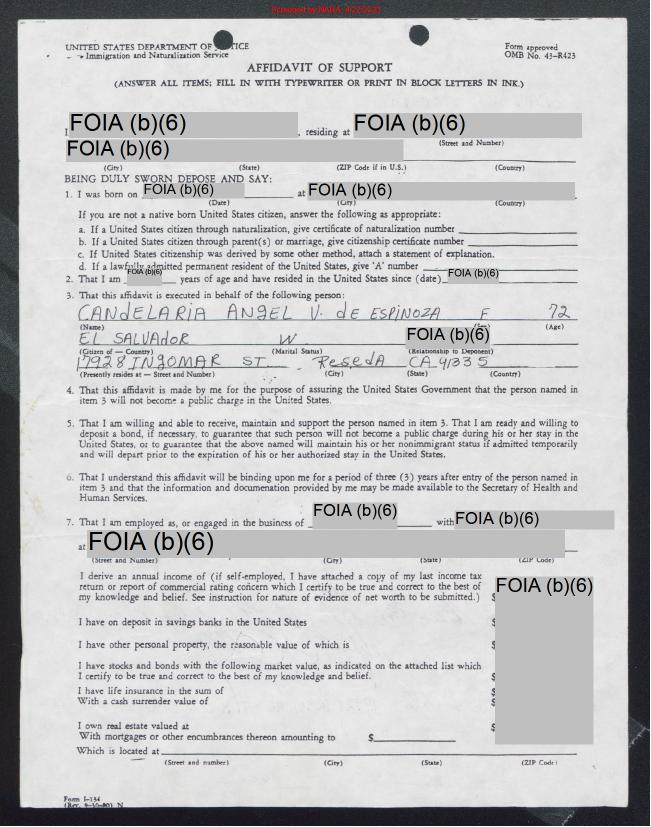 Screened by NARA, 4/27/2023
UNITED STATES DEPARTMENT OF JUSTICE
Immigration and Naturalization Service
Form approved
OMB No. 43-R423
AFFIDAVIT OF SUPPORT
(ANSWER ALL ITEMS; FILL IN WITH TYPEWRITER OR PRINT IN BLOCK LETTERS IN INK.)
I FOIA (b)(6), residing at FOIA (b)(6)
(Street and Number)
FOIA (b)(6)
(City) (State) (ZIP Code if in U.S.) (Country)
BEING DULY SWORN DEPOSE AND SAY:
1. I was born on FOIA (b)(6) at FOIA (b)(6)
(Date) (City) (Country)
If you are not a native born United States citizen, answer the following as appropriate:
a. If a United States citizen through naturalization, give certificate of naturalization number
b. If a United States citizen through parent(s) or marriage, give citizenship certificate number
c. If United States citizenship was derived by some other method, attach a statement of explanation.
d. If a lawfully admitted permanent resident of the United States, give 'A' number
2. That I am FOIA (b)(6) years of age and have resided in the United States since (date) FOIA (b)(6)
3. That this affidavit is executed in behalf of the following person:
CANdELARIA ANGEL V. de ESPINOZA F 72
(Name) (Sex) (Age)
EL SALVADOR W FOIA (b)(6)
(Citizen of — Country) (Marital Status) (Relationship to Deponent)
17928 INGOMAR ST. ReSedA CA 91335
(Presently resides at — Street and Number) (City) (State) (Country)
4. That this affidavit is made by me for the purpose of assuring the United States Government that the person named in
item 3 will not become a public charge in the United States.
5. That I am willing and able to receive, maintain and support the person named in item 3. That I am ready and willing to
deposit a bond, if necessary, to guarantee that such person will not become a public charge during his or her stay in the
United States, or to guarantee that the above named will maintain his or her nonimmigrant status if admitted temporarily
and will depart prior to the expiration of his or her authorized stay in the United States.
6. That I understand this affidavit will be binding upon me for a period of three (3) years after entry of the person named in
item 3 and that the information and documenation provided by me may be made available to the Secretary of Health and
Human Services.
7. That I am employed as, or engaged in the business of FOIA (b)(6) with FOIA (b)(6)
at FOIA (b)(6)
(Street and Number) (City) (State) (ZIP Code)
I derive an annual income of (if self-employed, I have attached a copy of my last income tax
return or report of commercial rating concern which I certify to be true and correct to the best of
my knowledge and belief. See instruction for nature of evidence of net worth to be submitted.) $ FOIA (b)(6)
I have on deposit in savings banks in the United States $
I have other personal property, the reasonable value of which is $
I have stocks and bonds with the following market value, as indicated on the attached list which
I certify to be true and correct to the best of my knowledge and belief. $
I have life insurance in the sum of $
With a cash surrender value of $
I own real estate valued at $
With mortgages or other encumbrances thereon amounting to $
Which is located at
(Street and number) (City) (State) (ZIP Code)
Form I-134
(Rev. 9-30-80) N